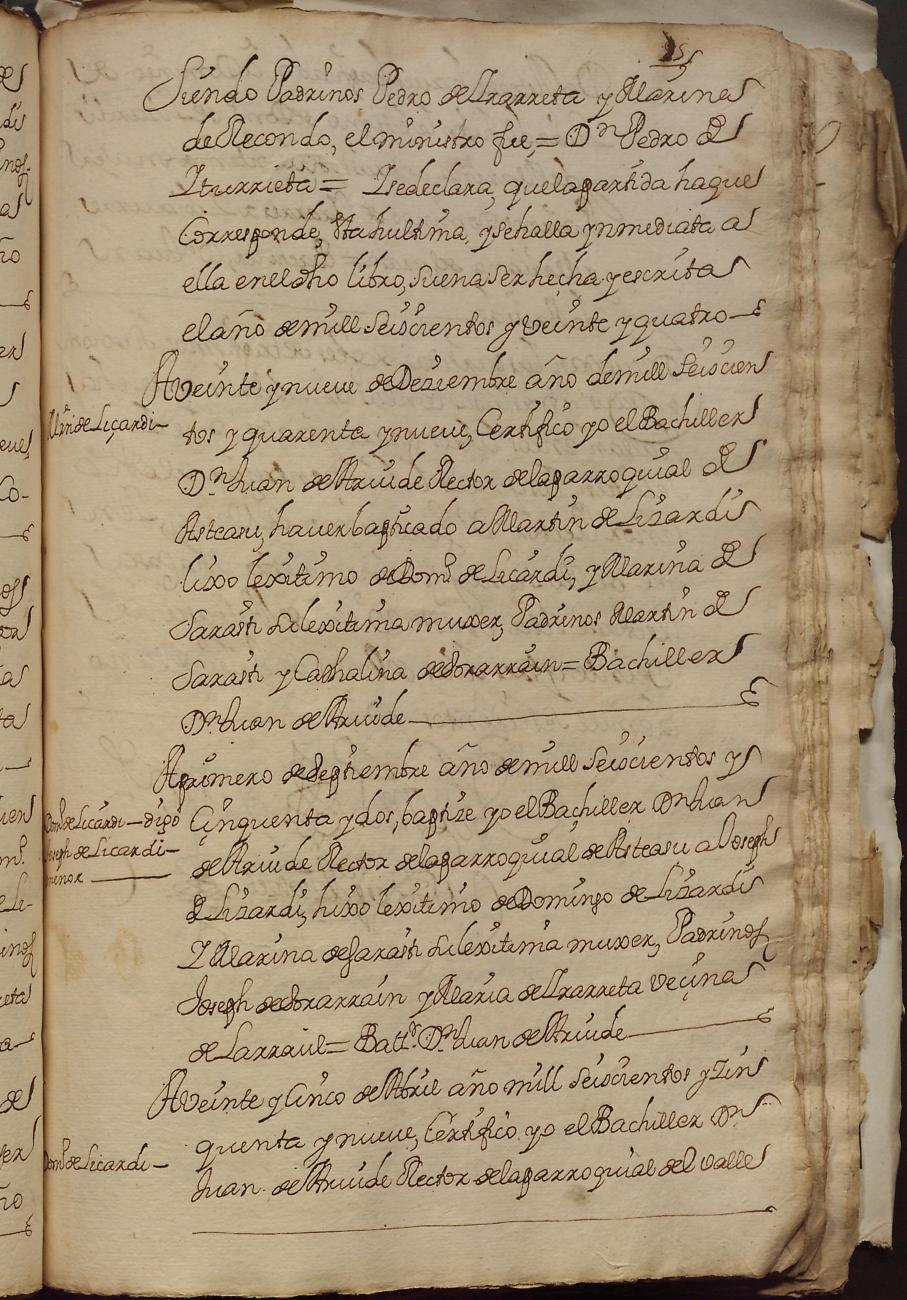 siendo Padrinos Pedro de Yrarreta y Marina
de Recondo, el ministro fue, = Dn Pedro de
Yturrieta = Y se declara, que la partida ha que
Corresponde, esta hultima, y se halla ynmediata a
ella en el dho libro, suena ser hecha y escrita
el año de mill seiscientos y veinte y quatro
A veinte y nueve de Deziembre año de mill seiscien
Mrn de Liçardi
tos y quarenta y nueve, Certifico yo el Bachiller
Dn Juan de Atruide Rector de la parroquial de
Asteasu, haver baptiçado a Martin de Lizardi
hixo lexitimo de Domo de Licardi, y Marina de
Sarasti su lexitima muxer, Padrinos Martin de
Sarasti y Cathalina de Sorarrain = Bachiller
Dn Juan de Atruide
A primero de Septiembre año de mill seiscientos y
Domo de Licardi digo
Joseph de Licardi
menor
Çinquenta y dos, baptize yo el Bachiller Dn Juan
de Atruide Rector de la parroquial de Asteasu a Joseph
de Lizardi, hixo lexitimo de Domingo de Lizardi
Y Marina de Sarasti su lexitima muxer, Padrinos
Joseph de Sorarrain y Maria de Yrarreta veçina
de Larraul = Batlr Dn Juan de Atruide
A veinte y Cinco de Abril año mill seiscientos y Zin
quenta y nueve, Certifico yo el Bachiller Dn
Domo de Licardi
Juan de Atruide Rector de la parroquial del valle